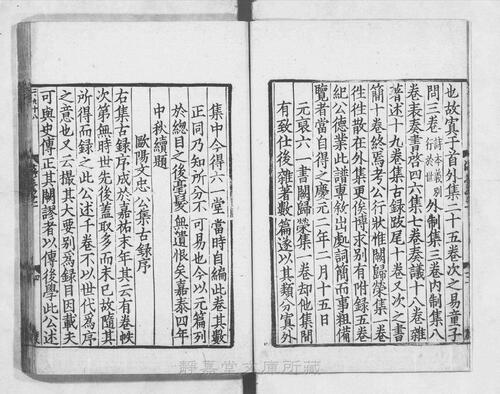 也故寘于首外集二十五卷次之易童子
問三卷詩本義别行於世外制集三卷内制集八
卷表奏書啓四六集七卷奏議十八卷雜
著述十九卷集古録跋尾十卷又次之書
簡十卷終焉考公行狀惟闕歸榮集一卷
往往散在外集更俟博求别有附録五卷
紀公德業此譜專敘出處詞簡而事粗備
覽者當自得之慶元二年二月十五日
元裒六一書闕歸榮集一卷却他集間
有致仕後雜著數篇遂以其類分寘外
集中今得六一堂當時自編此卷其數
正同乃知所分不可易也今以元篇列
於總目之後毫髮無遺恨矣嘉泰四年
中秋續題
歐陽文忠公集古録序
右集古録序成於嘉祐末年其云有卷帙
次第無時世先後蓋取多而未已故隨其
所得而録之此公述千卷不以世代爲序
之意也又云撮其大要别爲録目因載夫
可與史傳正其闕謬者以傳後學此公述
静嘉堂文庫所蔵